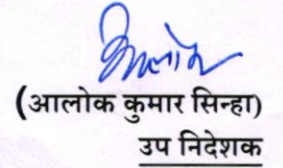 आलोक
(आलोक कुमार सिन्हा)
उप निदेशक